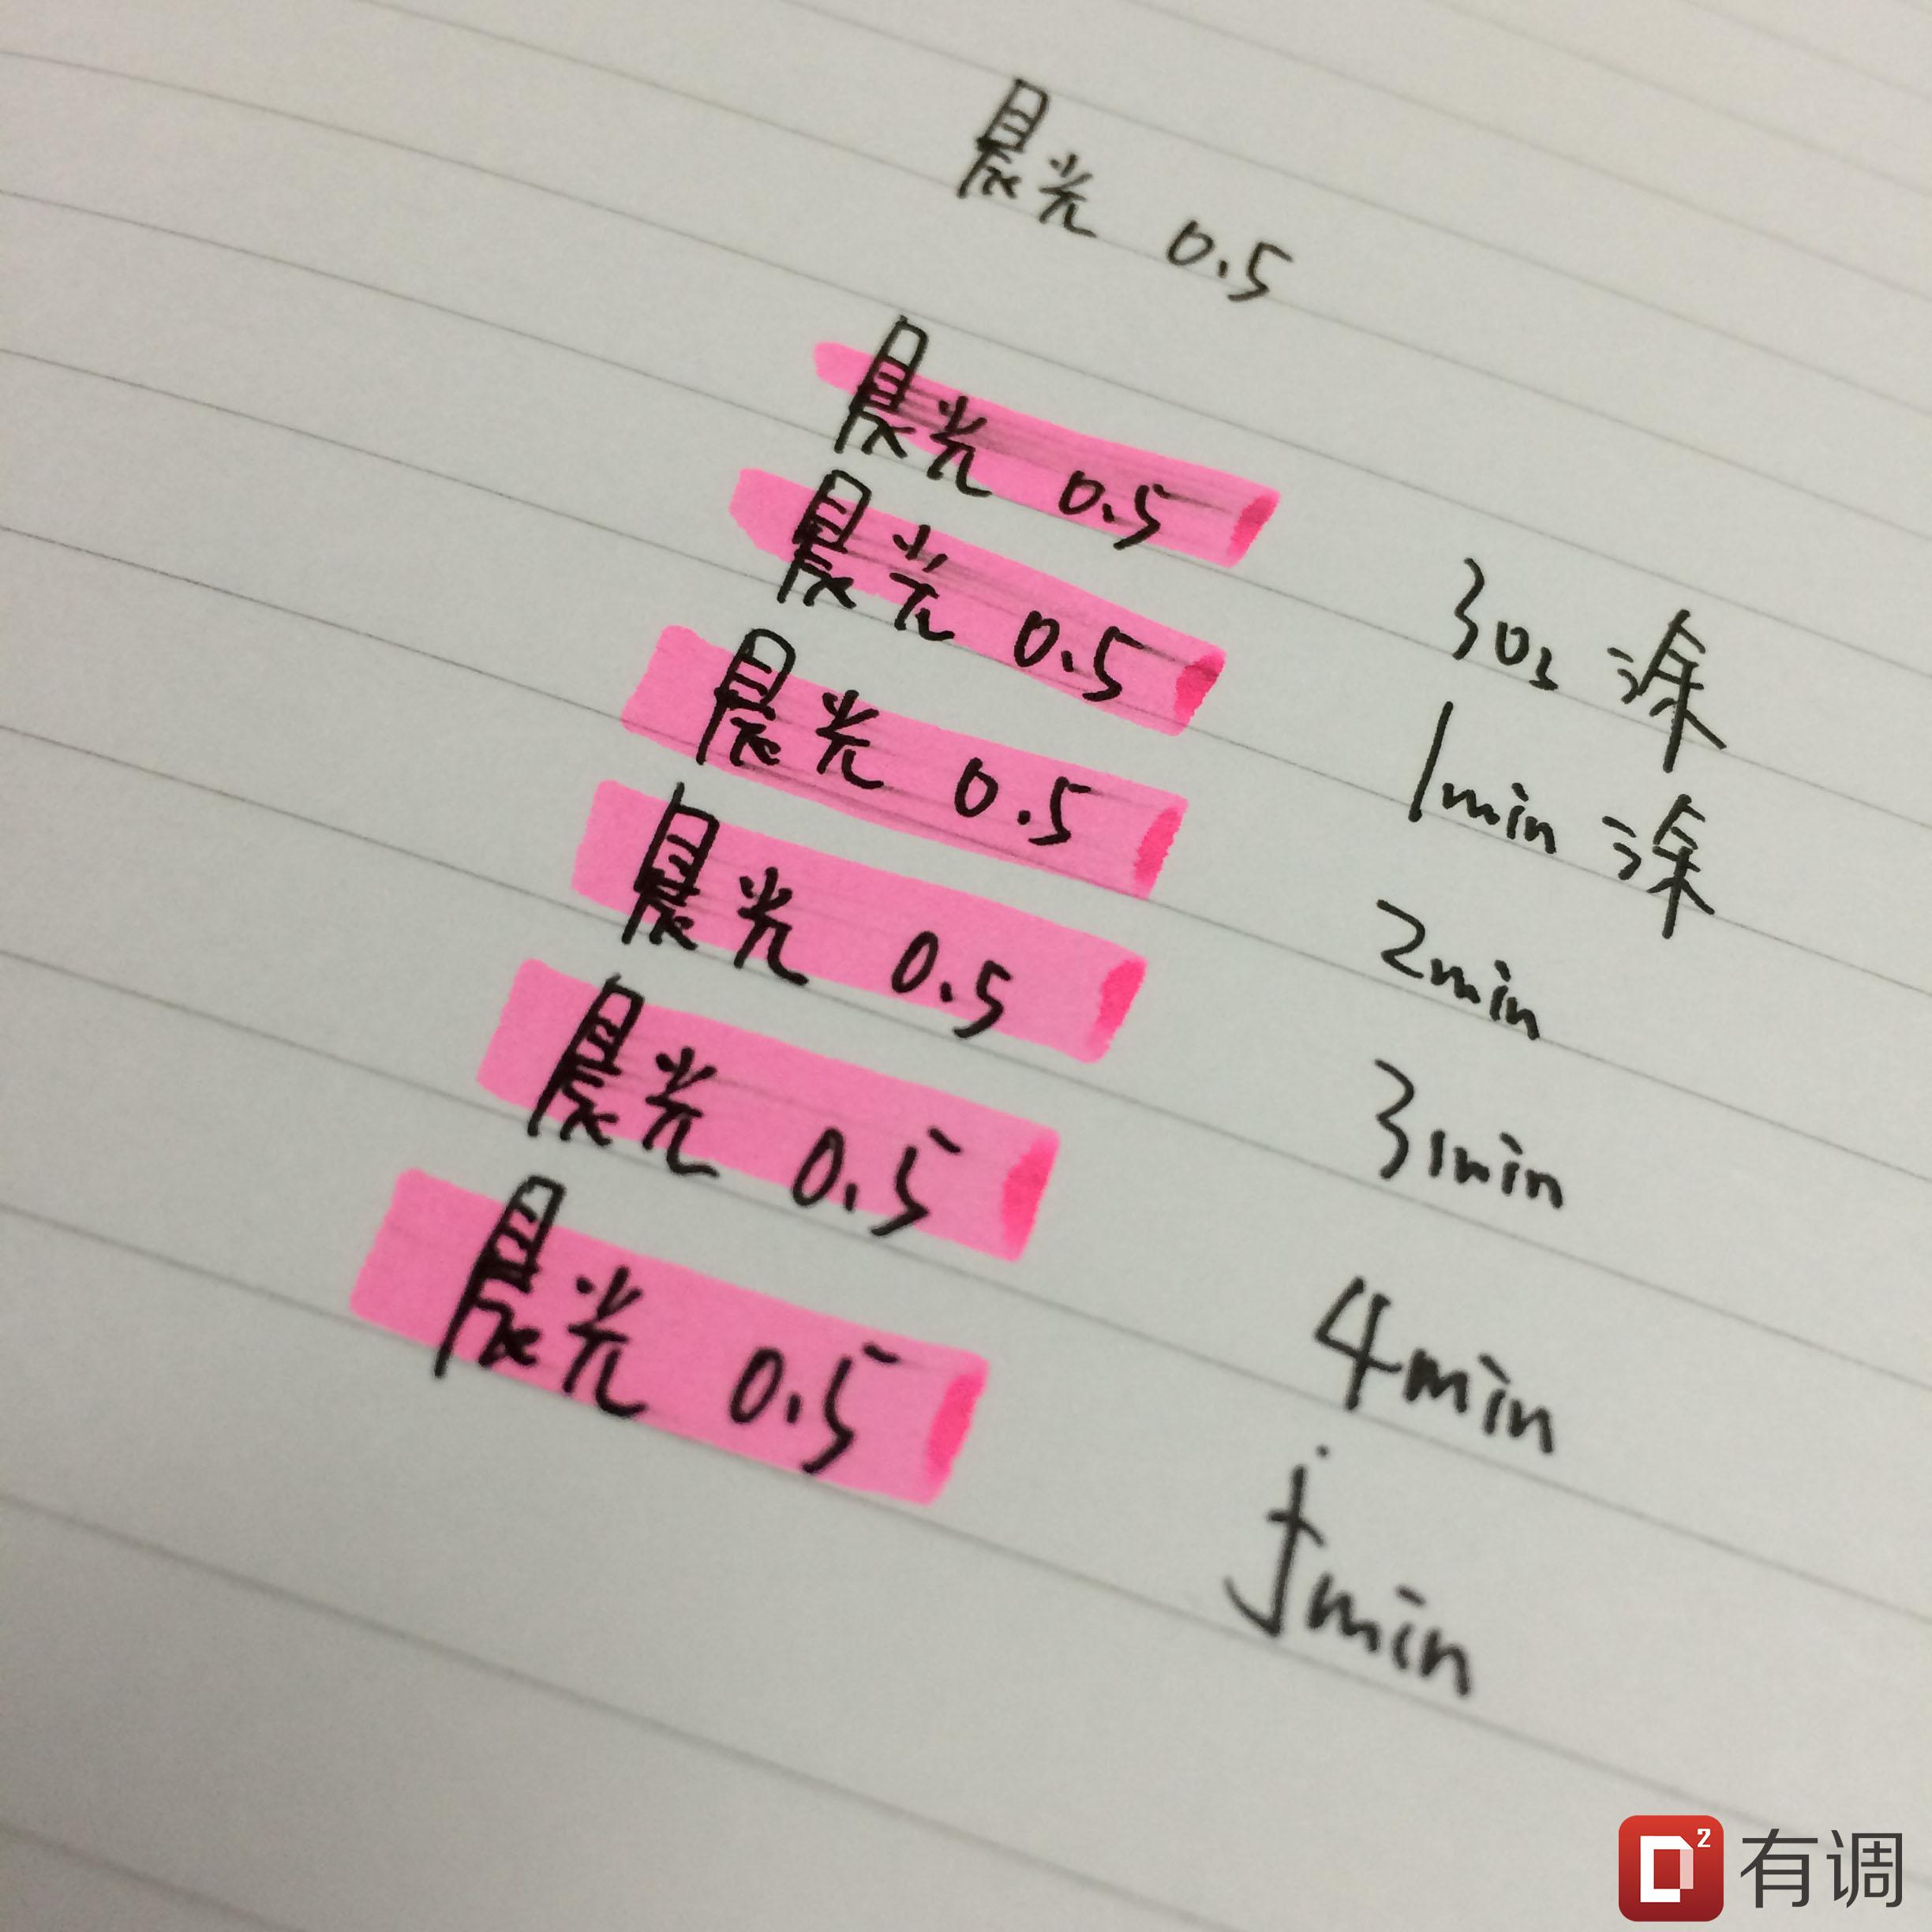 晨光 0.5
晨光 0.5 30s 涂
晨光 0.5 1min 涂
晨光 0.5 2min
晨光 0.5 3min
晨光 0.5 4min
晨光 0.5 5min
D² 有调